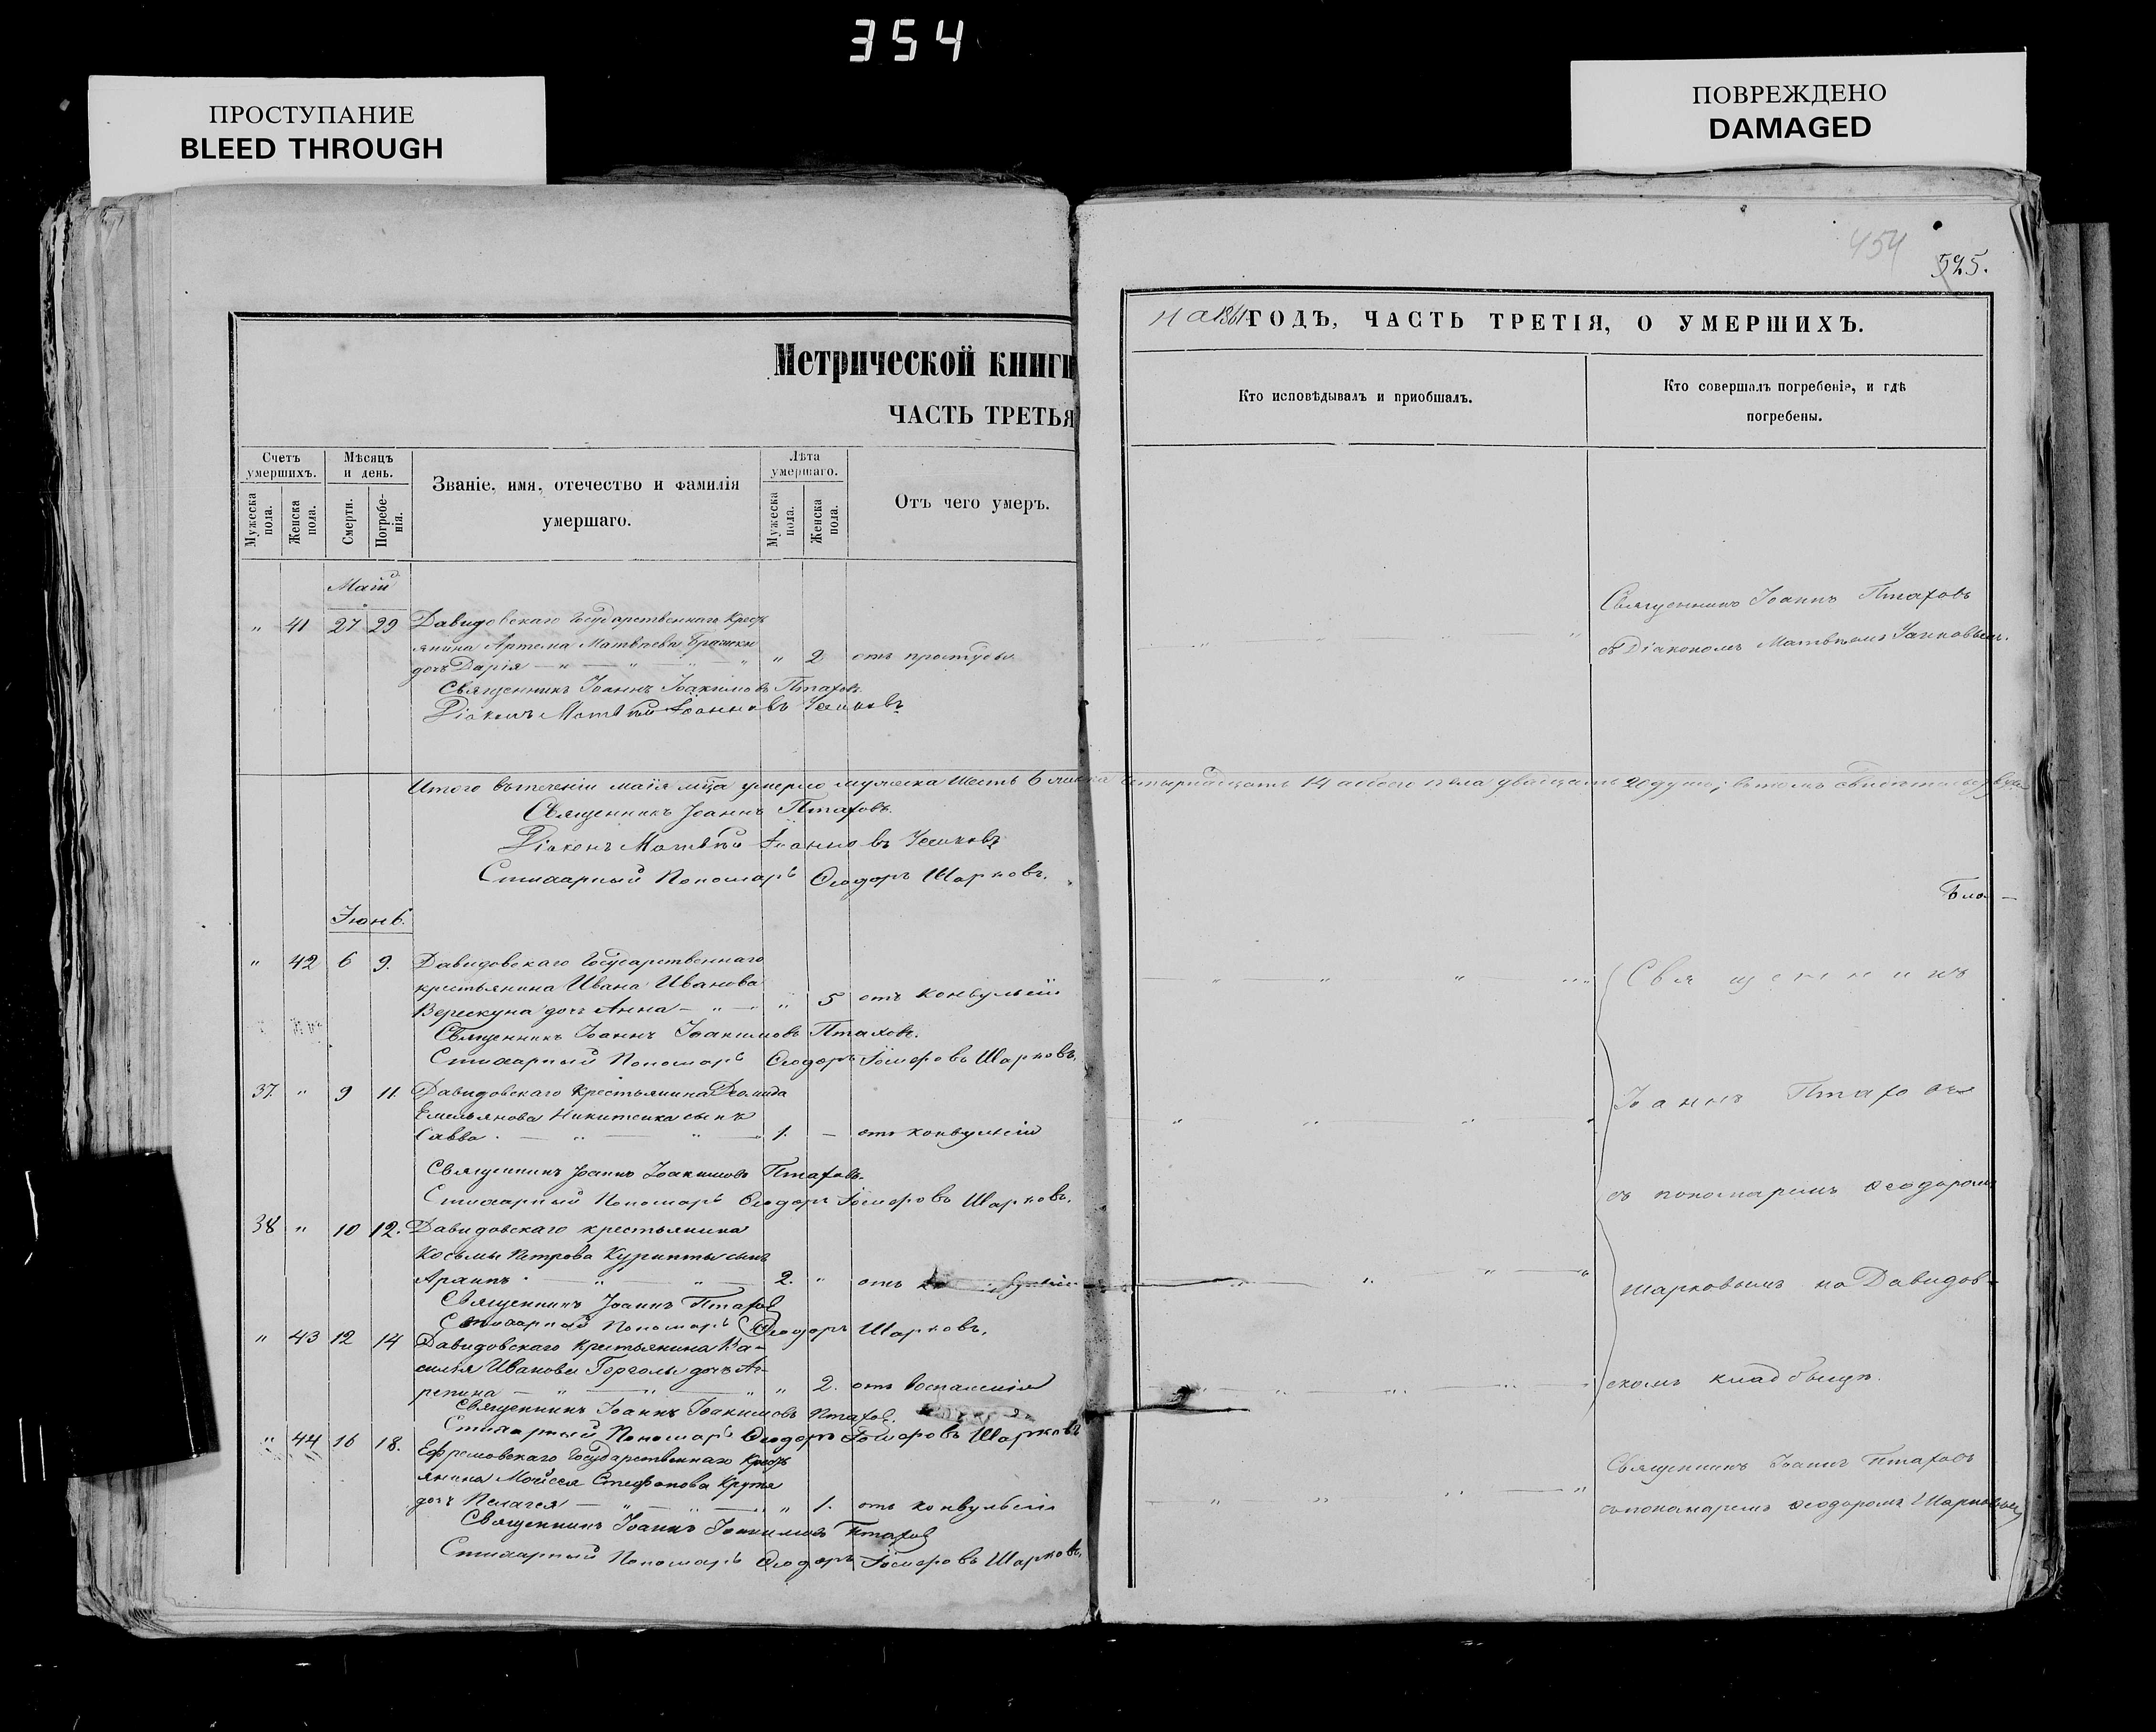 354
ПРОСТУПАНИЕ
BLEED THROUGH
ПОВРЕЖДЕНО
DAMAGED
454
525.
Метрической книги
ЧАСТЬ ТРЕТЬЯ
Счетъ умершихъ.
Мужеска пола.
Женска пола.
Мѣсяцъ и день.
Смерти.
Погребе-
нія.
Званіе, имя, отечество и фамилія
умершаго.
Лѣта умершаго.
Мужеска пола.
Женска пола.
Отъ чего умеръ.
Маій
" 41 27 29 Давидовскаго Государственнаго Крест
янина Артема Матвѣева
дочь Дарія " 2 отъ простуды
Священникъ Іоаннъ Іоакимовъ Птаховъ
Діаконъ Матвѣй Іоанновъ
Итого въ теченіи маія мца умерло мужеска шесть 6 женска
Священникъ Іоаннъ Птаховъ.
Діаконъ Матвѣй Іоанновъ
Стихарный Пономарь Ѳеодоръ Шарковъ.
Іюнь.
" 42 6 9. Давидовскаго Государственнаго
крестьянина Ивана Иванова
Верескуна дочь Анна " 5 отъ конвульсіи
Священникъ Іоаннъ Іоакимовъ Птаховъ.
Стихарный Пономарь Ѳеодоръ Шарковъ.
37. " 9 11. Давидовскаго крестьянина
Емельянова Никитенка сынъ
Савва 1. — отъ конвульсіи
Священникъ Іоаннъ Іоакимовъ Птаховъ.
Стихарный Пономарь Ѳеодоръ Шарковъ.
38 " 10 12. Давидовскаго крестьянина
Косьмы Петрова сынъ
2. " отъ
Священникъ Іоаннъ Птахов
Стихарный Пономарь Ѳеодоръ Шарковъ.
" 43 12 14 Давидовскаго крестьянина Ва-
силія Иванова дочь Аг-
репина " 2. отъ воспаленія
Священникъ Іоаннъ Іоакимовъ Птахов.
Стихарный Пономарь Ѳеодоръ Шарковъ
" 44 16 18. Ефремовскаго Государственнаго Крест
янина Моисея Стефанова
дочь Пелагея " 1. отъ конвульсіи
Священникъ Іоаннъ Іоакимовъ Птахов
Стихарный Пономарь Ѳеодоръ Шарковъ.
НА 1861 ГОДЪ, ЧАСТЬ ТРЕТІЯ, О УМЕРШИХЪ.
Кто исповѣдывалъ и пріобщалъ.
Кто совершалъ погребеніе, и гдѣ
погребены.
Священникъ Іоаннъ Птаховъ
съ Діакономъ Матвѣемъ
четырнадцать 14 обоего пола двадцать 20 душъ;
Священникъ
Іоаннъ Птаховъ
съ пономаремъ Ѳеодоромъ
Шарковымъ на Давидов-
скомъ кладбищѣ.
Священникъ Іоаннъ Птаховъ
съ пономаремъ Ѳеодоромъ Шарковым